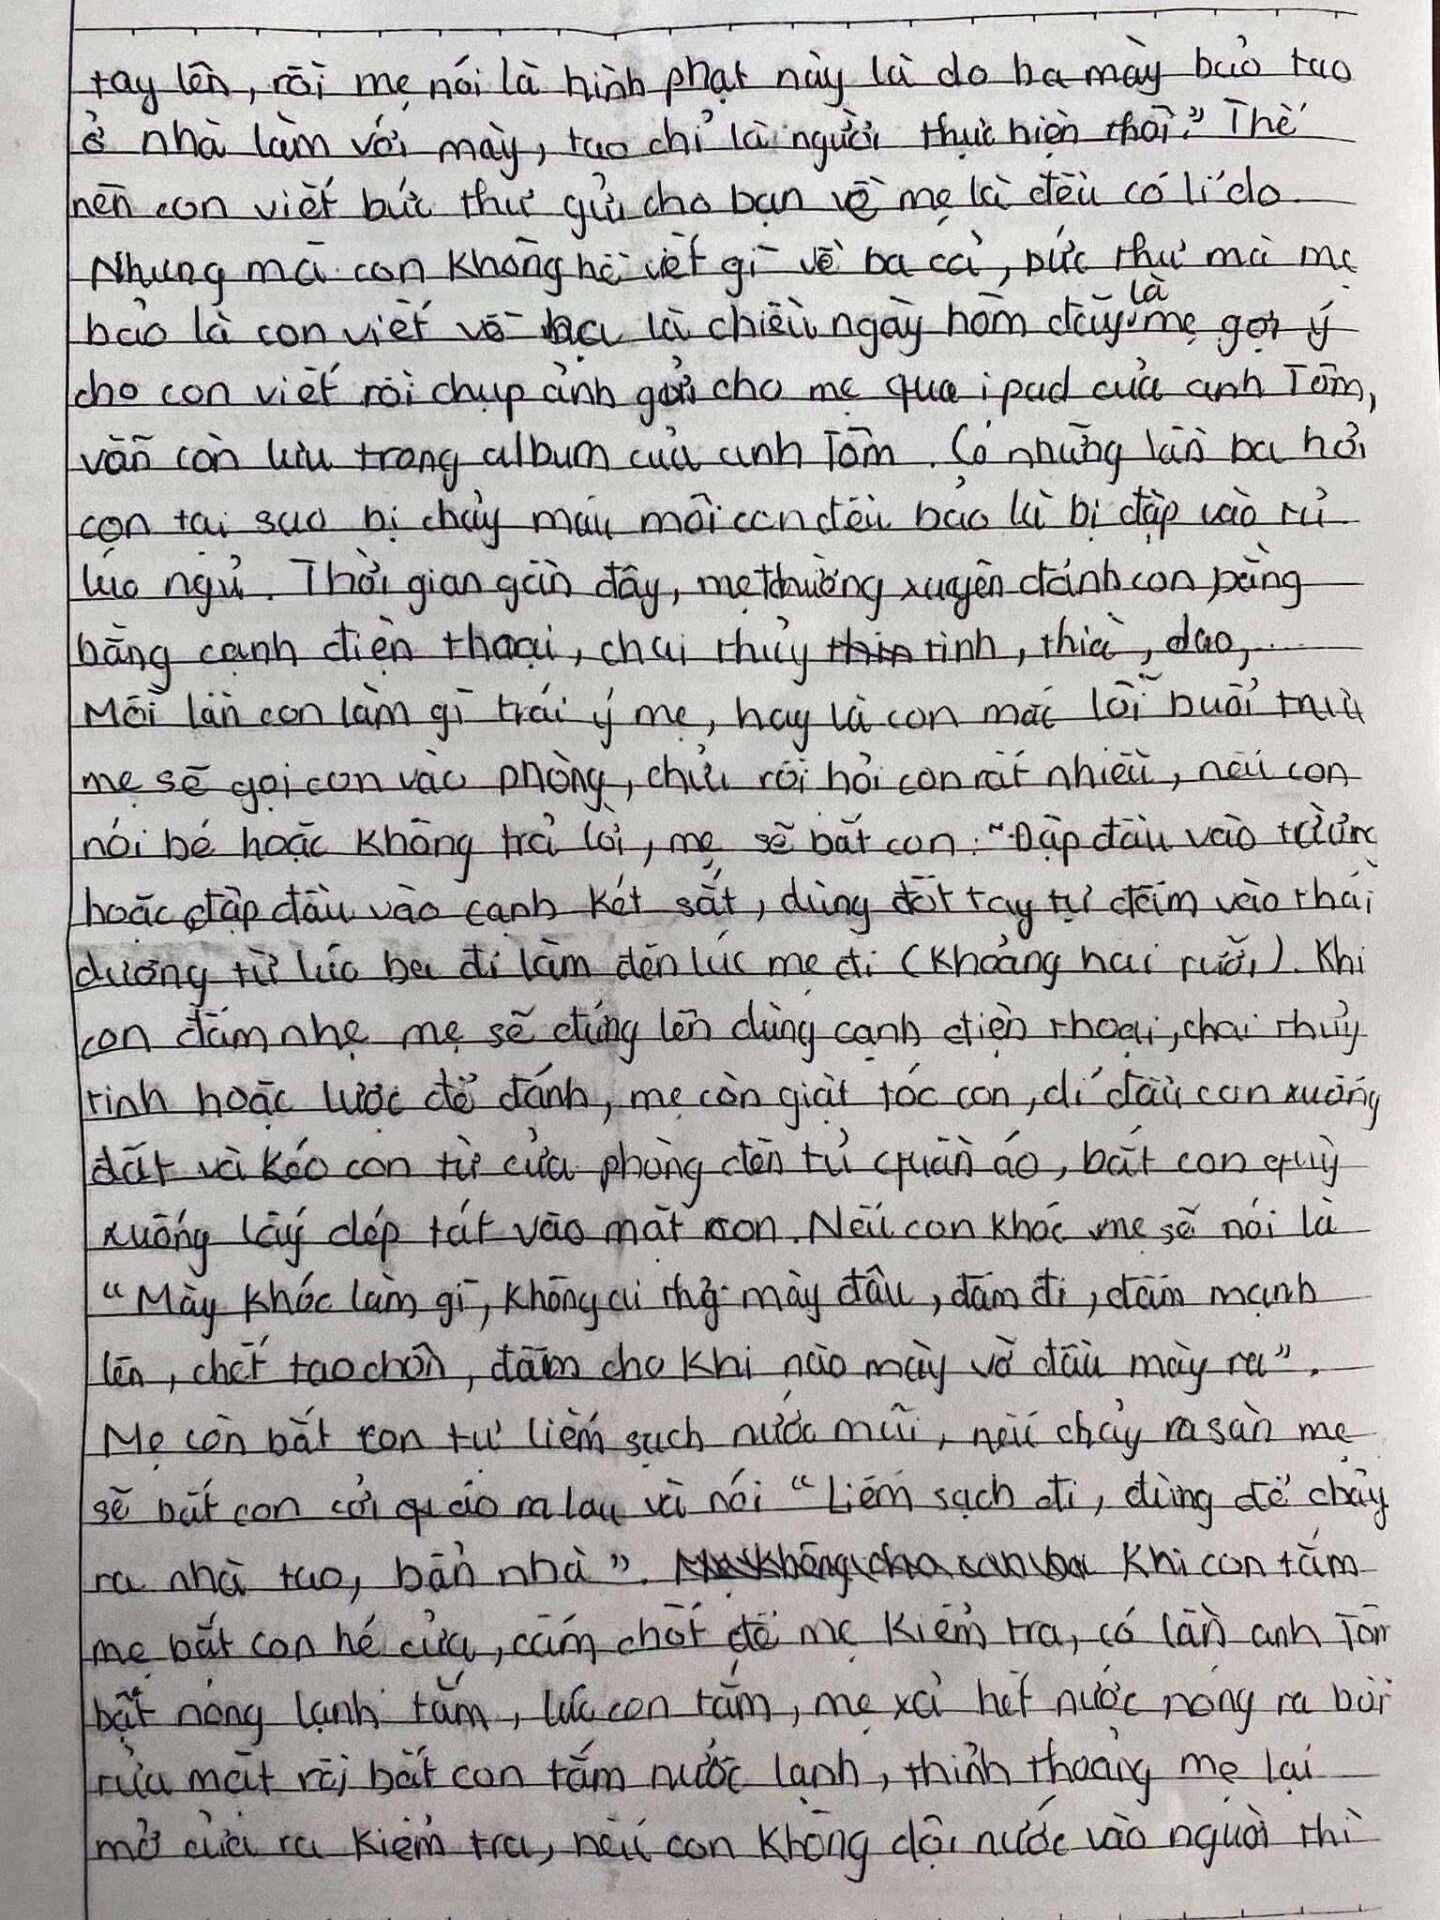 tay lên, rồi mẹ nói là hình phạt này là do ba mày bảo tao
ở nhà làm với mày, tao chỉ là người thực hiện thôi." Thế
nên con viết bức thư gửi cho bạn về mẹ là đều có lí do.
Nhưng mà con không hề viết gì về ba cả, bức thư mà mẹ
bảo là con viết về ba là chiều ngày hôm đấy là mẹ gợi ý
cho con viết rồi chụp ảnh gửi cho mẹ qua ipad của anh Tôm,
vẫn còn lưu trong album của anh Tôm. Có những lần ba hỏi
con tại sao bị chảy máu môi con đều bảo là bị đập vào tủ
lúc ngủ. Thời gian gần đây, mẹ thường xuyên đánh con bằng
bằng cạnh điện thoại, chai thủy tinh, thìa, dao,...
Mỗi lần con làm gì trái ý mẹ, hay là con mắc lỗi buổi trưa
mẹ sẽ gọi con vào phòng, chửi rồi hỏi con rất nhiều, nếu con
nói bé hoặc không trả lời, mẹ sẽ bắt con: "Đập đầu vào tường
hoặc đập đầu vào cạnh két sắt, dùng đốt tay tự đấm vào thái
dương từ lúc ba đi làm đến lúc mẹ đi (khoảng hai rưỡi). Khi
con đấm nhẹ mẹ sẽ đứng lên dùng cạnh điện thoại, chai thủy
tinh hoặc lược để đánh, mẹ còn giật tóc con, dí đầu con xuống
đất và kéo con từ cửa phòng đến tủ quần áo, bắt con quỳ
xuống lấy dép tát vào mặt con. Nếu con khóc mẹ sẽ nói là
"Mày khóc làm gì, không ai thở mày đâu, đấm đi, đấm mạnh
lên, chết tao chôn, đấm cho khi nào mày vỡ đầu mày ra".
Mẹ còn bắt con tự liếm sạch nước mũi, nếu chảy ra sàn mẹ
sẽ bắt con cởi quần áo ra lau và nói "Liếm sạch đi, đừng để chảy
ra nhà tao, bẩn nhà". Khi con tắm
mẹ bắt con hé cửa, cấm chốt để mẹ kiểm tra, có lần anh Tôm
bật nóng lạnh tắm, lúc con tắm, mẹ xả hết nước nóng ra bồn
rửa mặt rồi bắt con tắm nước lạnh, thỉnh thoảng mẹ lại
mở cửa ra kiểm tra, nếu con không dội nước vào người thì